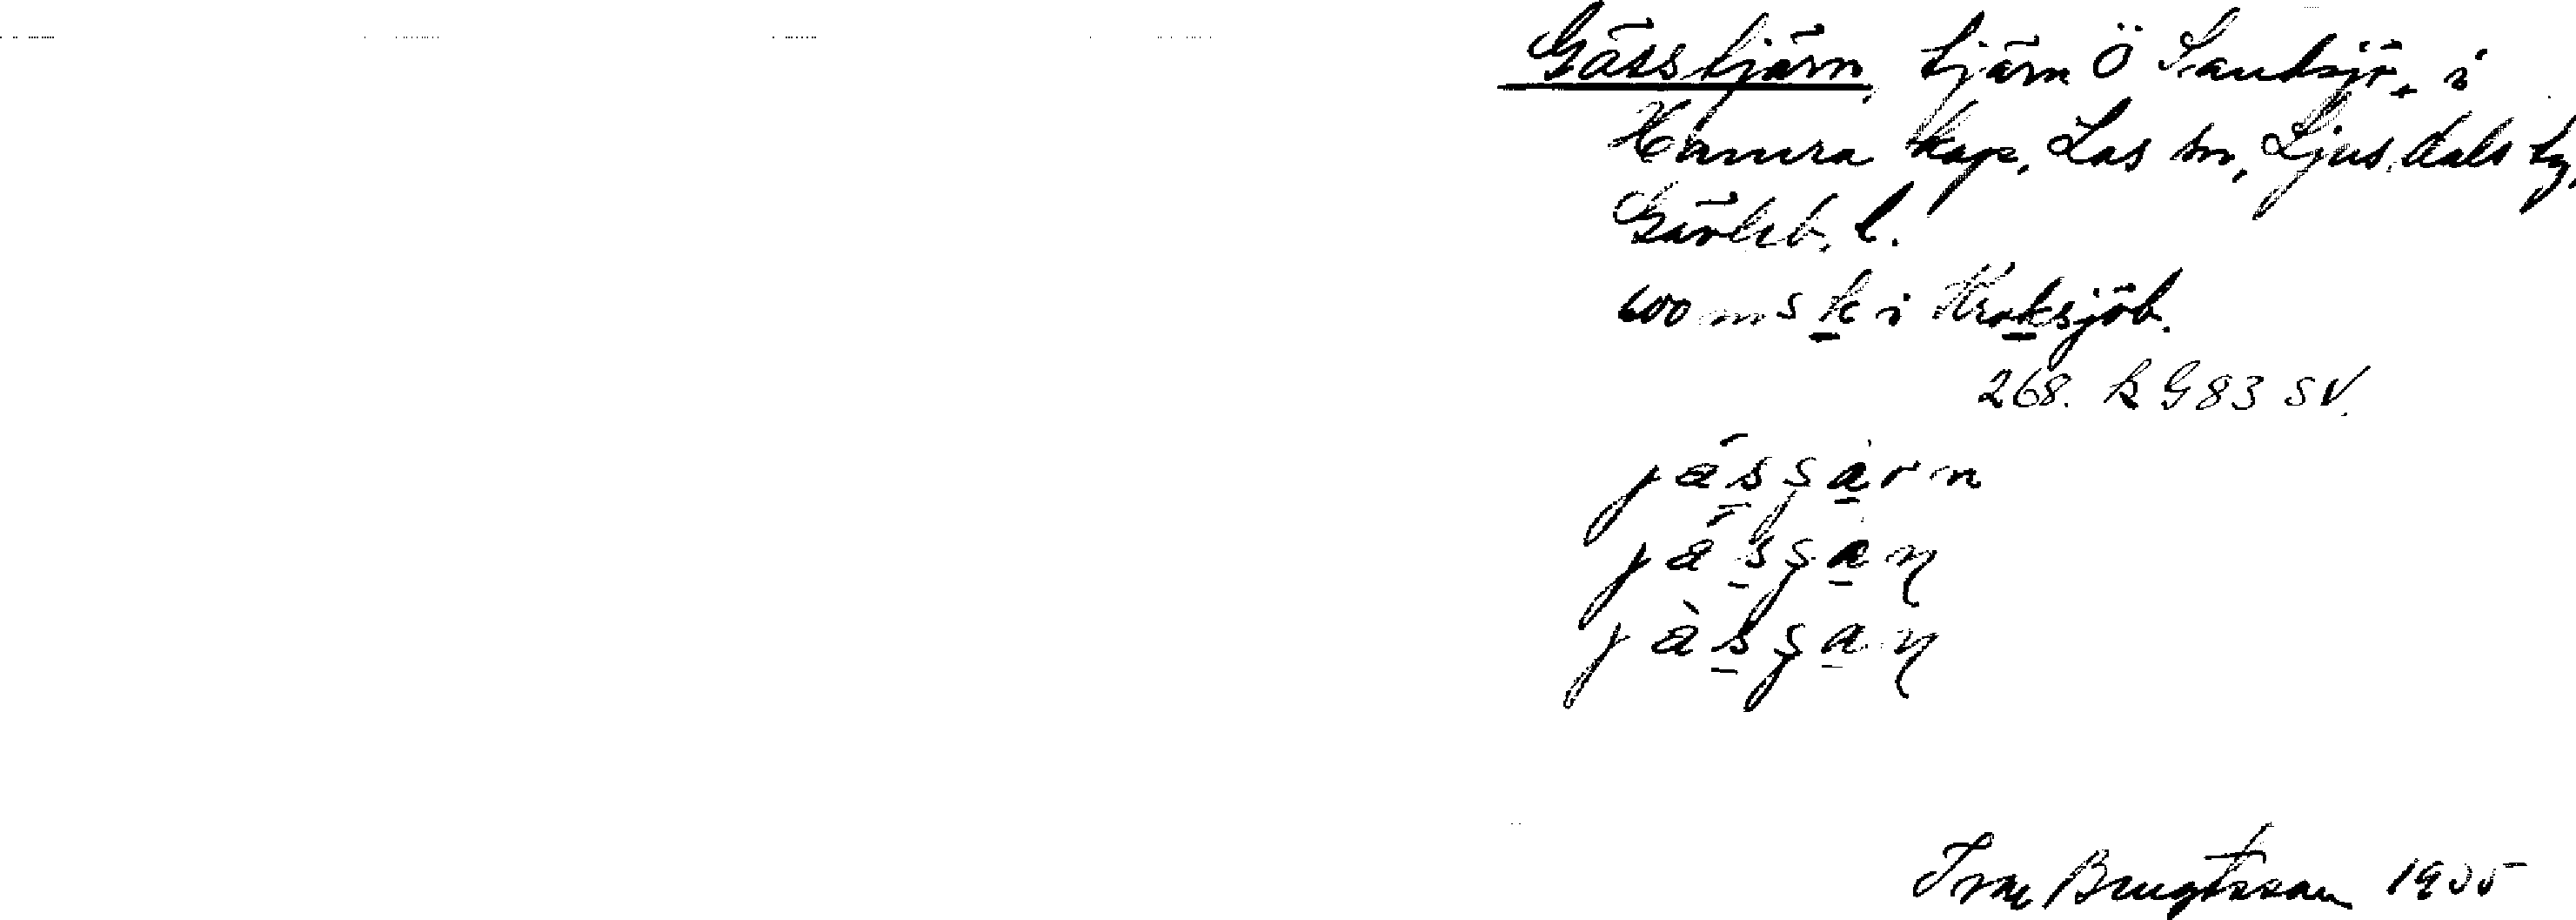 Gässtjärn, tjärn Ö Sandsjö. i
Hamra kap. Los sn, Ljusdals tg,
Gävleb. l.
600 m S k i Kroksjöb.
268. k G 83 SV.
jássarn
jássaɳ
jàssaɳ
Bengtsson 1935